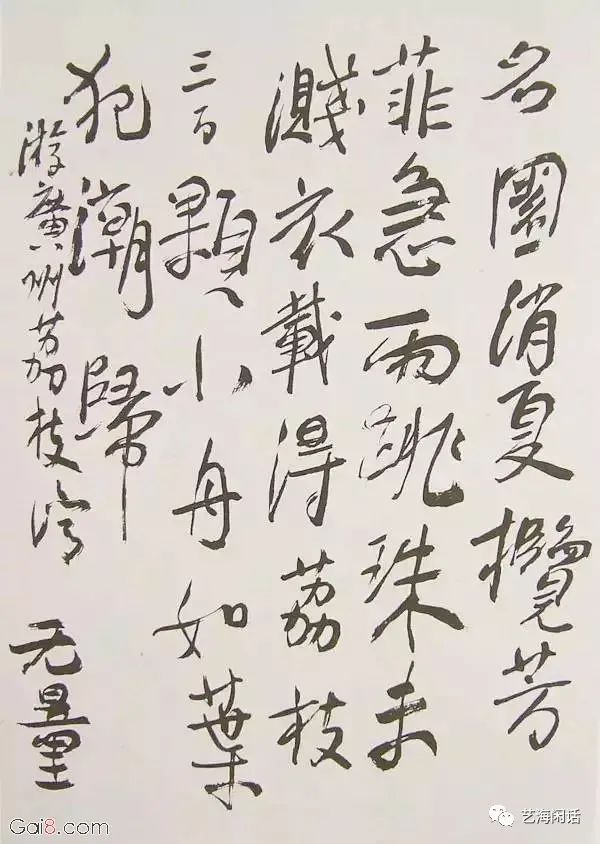 名園消夏攬芳
菲急雨跳珠未
濺衣載得荔枝
三百顆小舟如葉
犯潮歸
游廣州荔枝灣
无量
Gai8.com
艺海闲话